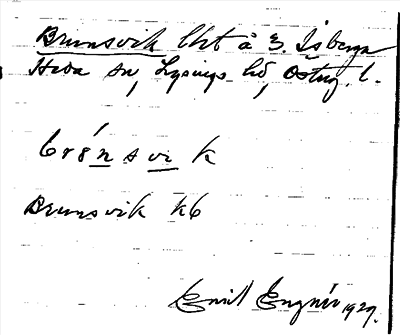 Brunsvik lht å E. Isberga
Heda sn, Lysings hd, Österg. l.
brónsvik
Brunsvik kb
Emil Engnér 1929.